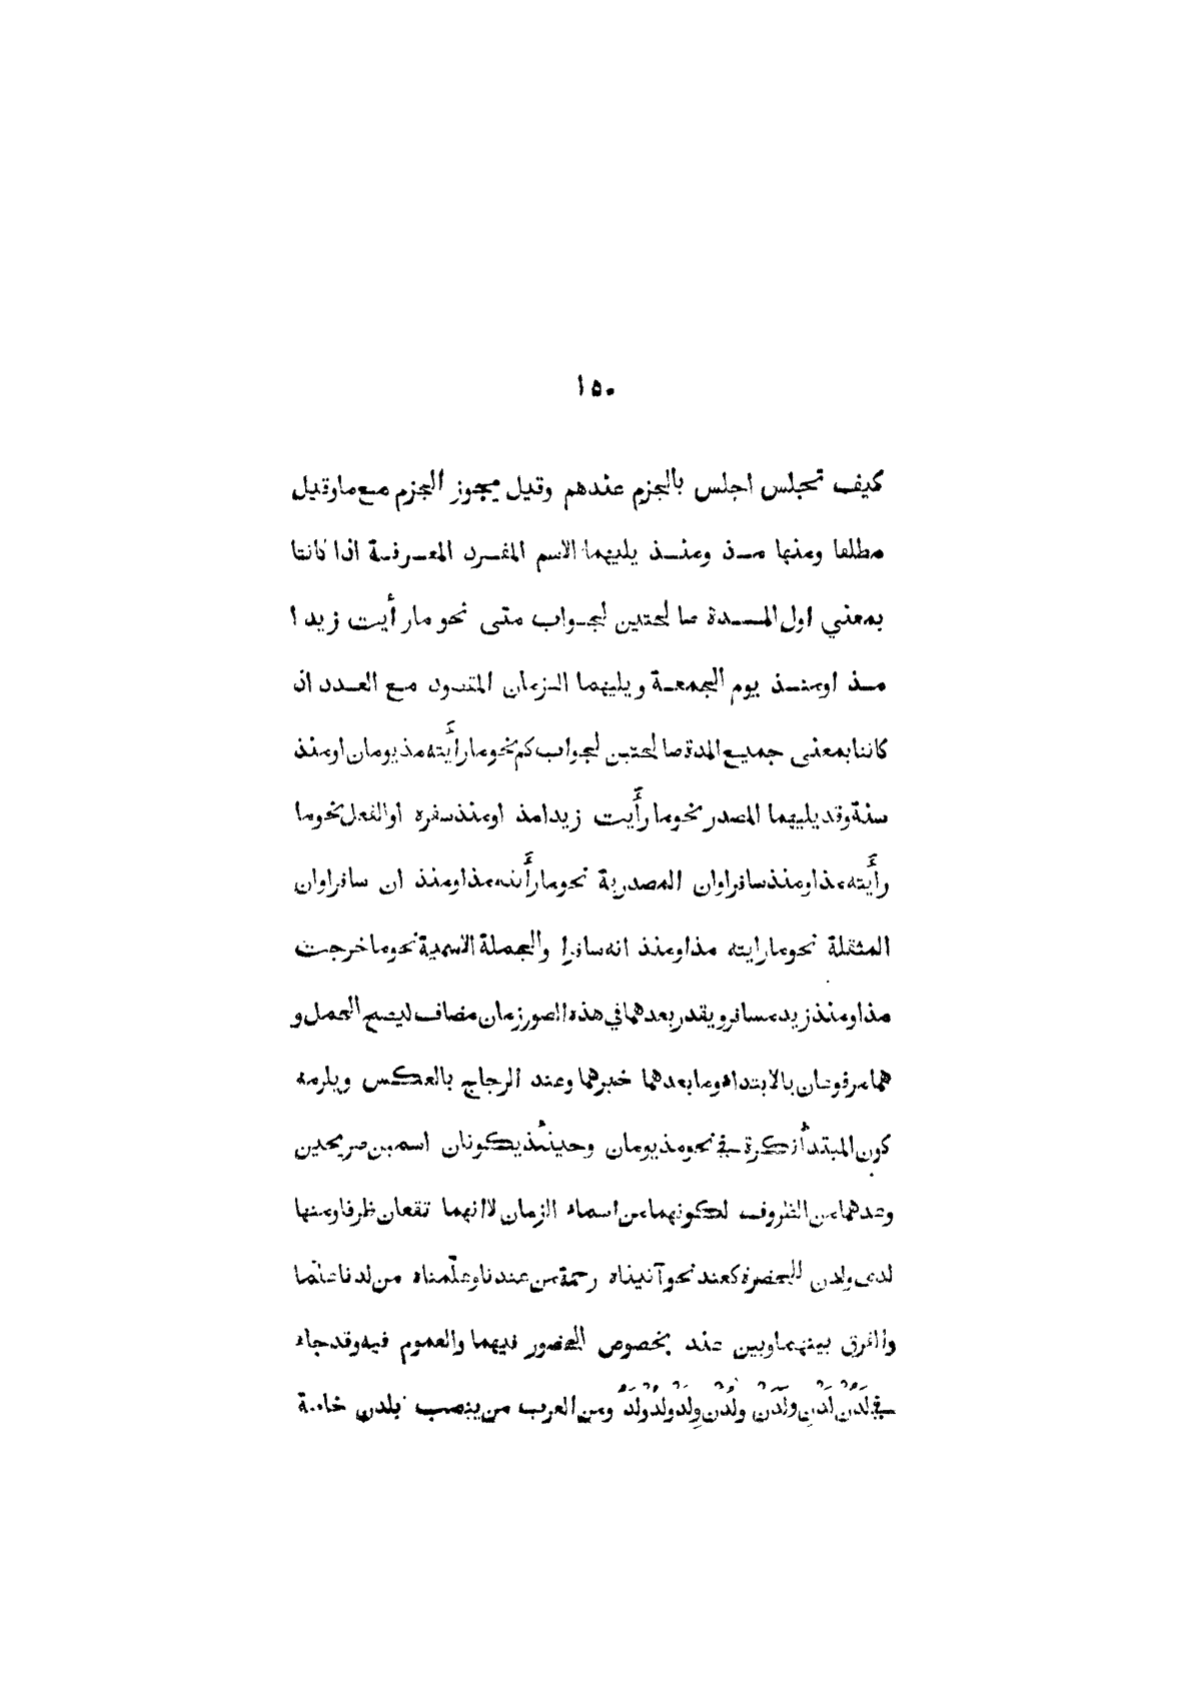 ١٥٠
كيف تجلس اجلس بالجزم عندهم وقيل يجوز الجزم مع ما وقيل
مطلقا ومنها مذ ومنذ يليهما الاسم المفرد المعرفة اذا كانتا
بمعني اول المدة صالحتين لجواب متى نحو ما رأيت زيدا
مذ او منذ يوم الجمعة ويليهما الزمان المقصود مع العدد ان
كانتا بمعنى جميع المدة صالحتين لجواب كم نحو ما رأيته مذ يومان او منذ
سنة وقد يليهما المصدر نحو ما رأيت زيدا مذ او منذ سفره او الفعل نحو ما
رأيته مذ او منذ سافر او ان المصدرية نحو ما رأيته مذ او منذ ان سافر او ان
المثقلة نحو ما رايته مذ او منذ انه سافر او الجملة الاسمية نحو ما خرجت
مذ او منذ زيد مسافر ويقدر بعدهما في هذه الصور زمان مضاف ليصح الحمل و
هما مرفوعان بالابتداء وما بعدهما خبرهما وعند الزجاج بالعكس ويلزمه
كون المبتدأ نكرة في نحو مذ يومان وحينئذ يكونان اسمين صريحين
وعدهما من الظروف لكونهما من اسماء الزمان لا انهما تقعان ظرفا ومنها
لدى ولدن للحضرة كعند نحو آتيناه رحمة من عندنا وعلّمناه من لدنا علما
والفرق بينهما وبين عند بخصوص الحضور فيهما والعموم فيه وقد جاء
في لَدُنْ لَدْنِ ولَدَنْ ولُدْنِ ولَدْ ولُدْ ولَدُ ومن العرب من ينصب بلدن خاصة